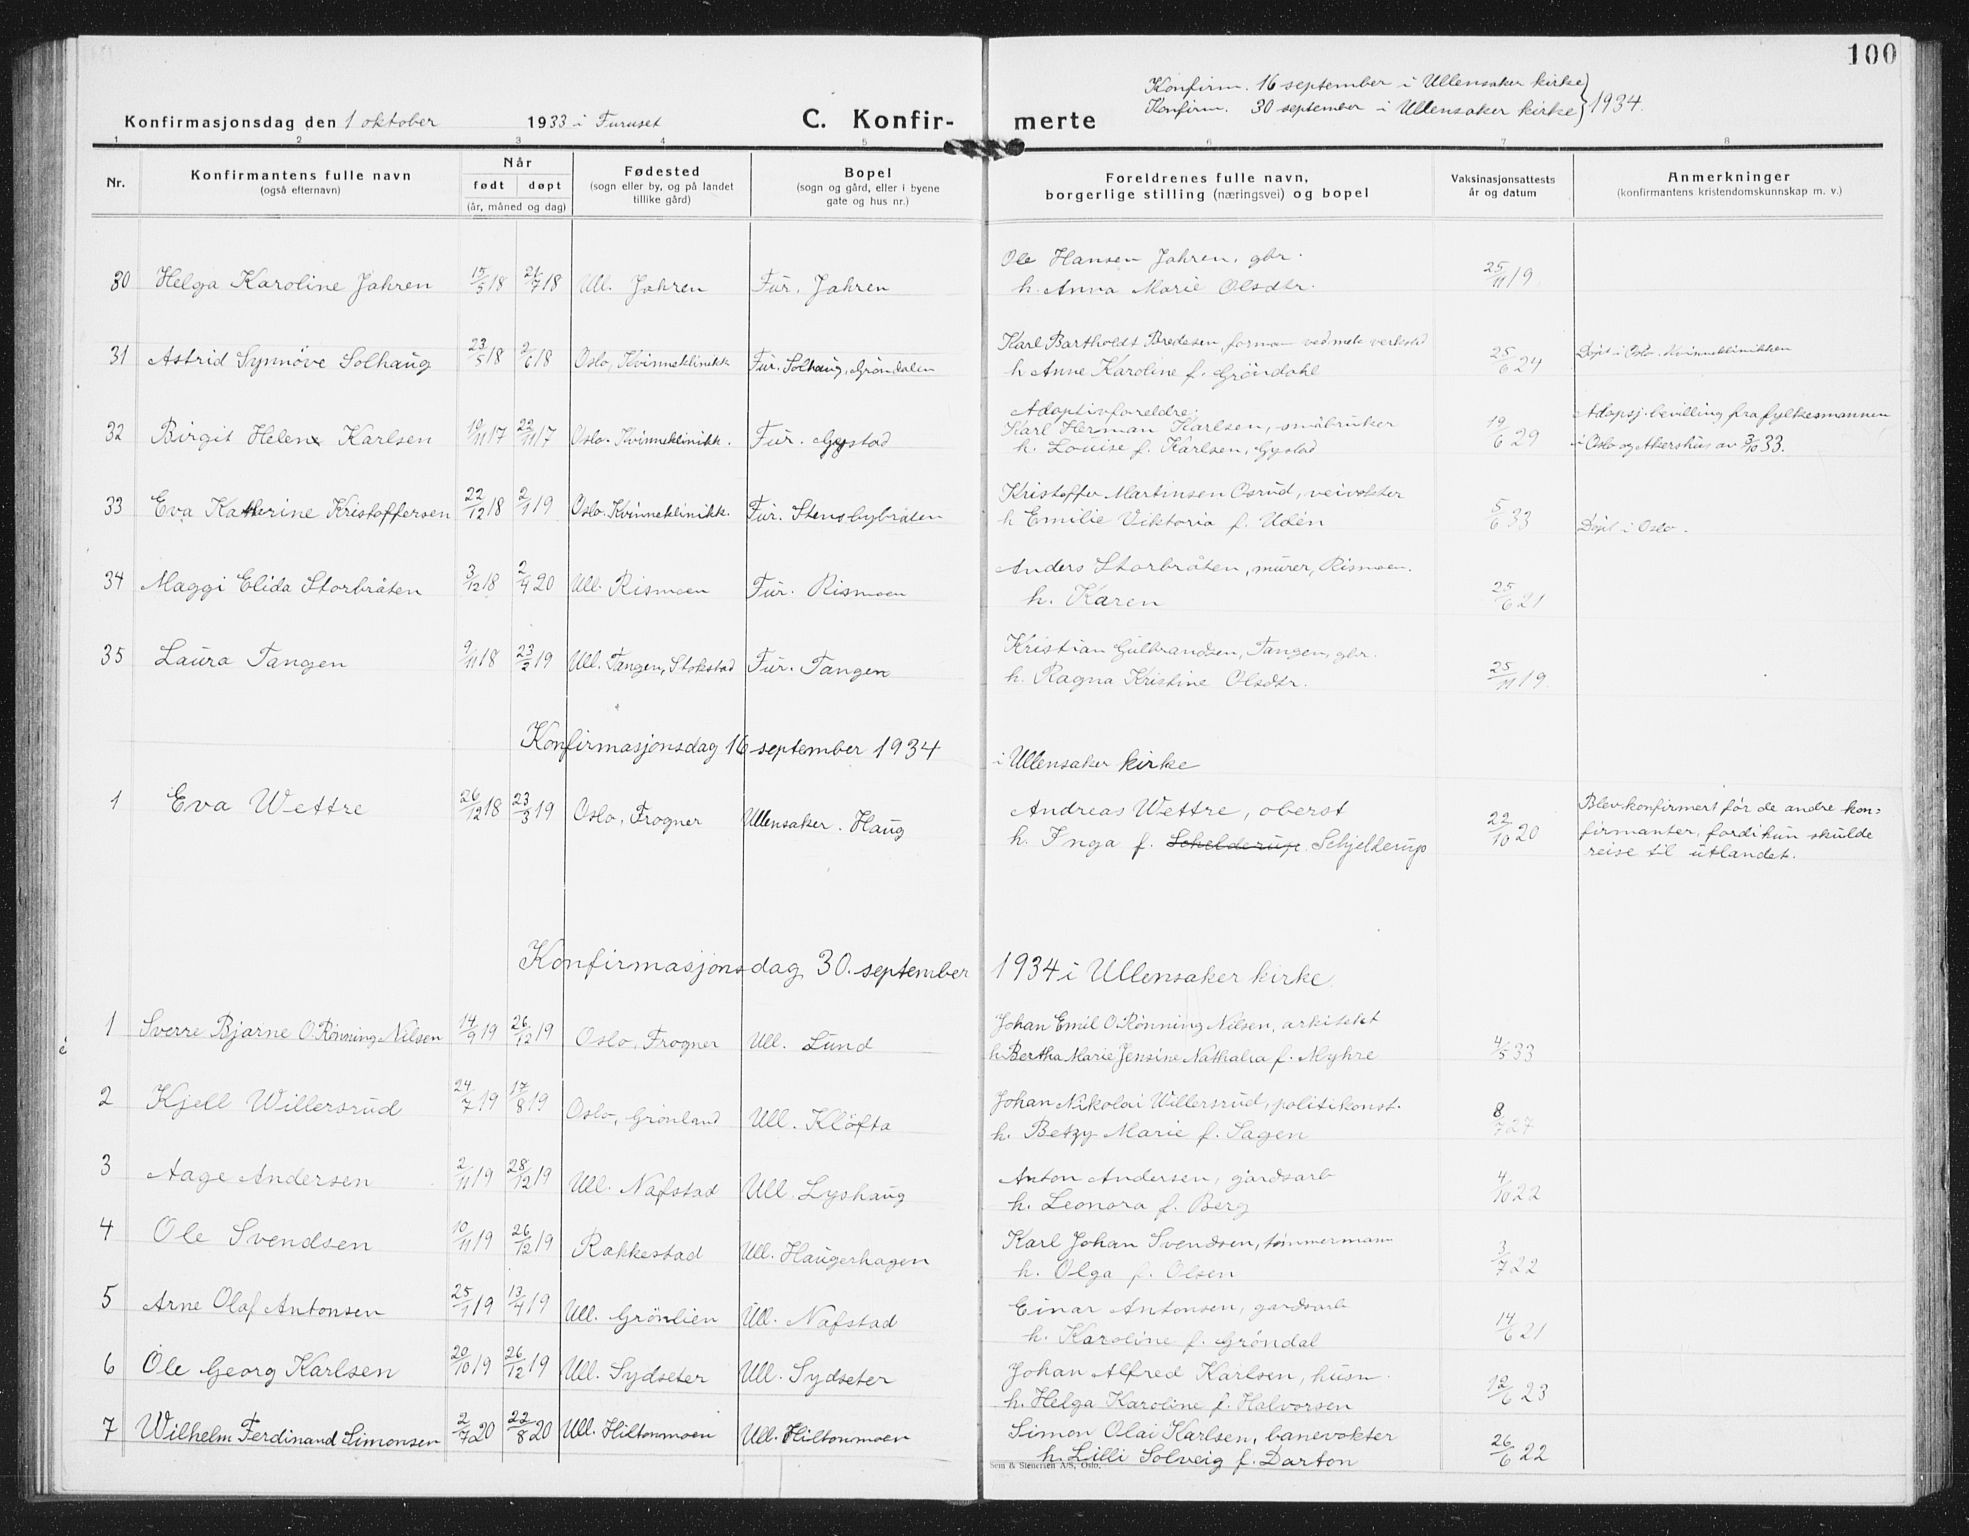 100
Konfirm. 16 september i Ullensaker kirke
Konfirm. 30 september i Ullensaker kirke } 1934.
Konfirmasjonsdag den 1 oktober 1933 i Furuset C. Konfir- merte
1 2 3 4 5 6 7 8
Nr. Konfirmantens fulle navn (også efternavn) Når født døpt (år, måned og dag) Fødested (sogn eller by, og på landet tillike gård) Bopel (sogn og gård, eller i byene gate og hus nr.) Foreldrenes fulle navn, borgerlige stilling (næringsvei) og bopel Vaksinasjonsattests år og datum Anmerkninger (konfirmantens kristendomskunnskap m. v.)
Ole Hansen Jahren, gbr.
30 Helga Karoline Jahren 15/5 18 21/7 18 Ull. Jahren Fur. Jahren h. Anna Marie Olsdtr. 25/11 19
Karl Bartholdt Bredesen, formann ved mek verksted
31 Astrid Synnöve Solhaug 23/5 18 2/6 18 Oslo, Kvinneklinikk Fur. Solhaug, Gröndalen h Anne Karoline f. Gröndahl 25/6 24 Döpt i Oslo. Kvinneklinikken
Adoptivforeldre:
Karl Herman Karlsen, småbruker
32 Birgit Helene Karlsen 19/11 17 22/11 17 Oslo. Kvinneklinikk. Fur. Gystad h. Louise f. Karlsen, Gystad 19/6 29 Adopsj. bevilling fra fylkesmannen
i Oslo og Akershus av 3/10 33.
Kristoffer Martinsen Osrud, veivokter
33 Eva Katherine Kristoffersen 22/12 18 2/1 19 Oslo. Kvinneklinikk. Fur. Stensbybråten h Emilie Viktoria f. Udén 5/6 33 Döpt i Oslo.
Anders Storbråten, murer, Rismoen.
34 Maggi Elida Storbråten 3/12 18 2/4 20 Ull. Rismoen Fur. Rismoen h. Karen 25/6 21
Kristian Gulbrandsen, Tangen, gbr.
35 Laura Tangen 9/11 18 23/2 19 Ull. Tangen, Stokstad Fur. Tangen h. Ragna Kristine Olsdtr. 25/11 19.
Konfirmasjonsdag 16 september 1934 i Ullensaker kirke
1 Eva Wettre 26/12 18 23/3 19 Oslo, Frogner Ullensaker. Haug Andreas Wettre, oberst
h. Inga f. Schelderup. Schjelderup 22/10 20 Blev konfirmert før de andre kon=
firmanter, fordi hun skulde
reise til utlandet.
Konfirmasjonsdag 30. september 1934 i Ullensaker kirke
Johan Emil O. Rönning Nilsen, arkitekt
1 Sverre Bjarne O. Rönning Nilsen 14/9 19 26/12 19 Oslo, Frogner Ull. Lund h. Bertha Marie Jensine Nathalia f. Myhre 4/5 33
Johan Nikolai Willersrud, politikonst.
2 Kjell Willersrud 24/7 19 17/8 19 Oslo, Grönland Ull. Klöfta h. Betzy Marie f. Sagen 8/7 27
Anton Andersen, gårdsarb
3 Aage Andersen 2/11 19 28/12 19 Ull. Nafstad Ull. Lyshaug h. Leonora f. Berg 4/10 22
Karl Johan Svendsen, tømmermann
4 Ole Svendsen 10/11 19 26/12 19 Rakkestad Ull. Haugerhagen h. Olga f. Olsen 3/7 22
Einar Antonsen, gardsarb
5 Arne Olaf Antonsen 25/1 19 13/4 19 Ull. Grönlien Ull. Nafstad h. Karoline f. Gröndal 14/6 21
Johan Alfred Karlsen, husm.
6 Ole Georg Karlsen 20/10 19 26/12 19 Ull. Sydseter Ull. Sydseter h. Helga Karoline f. Halvorsen 12/6 23
Simon Olai Karlsen, banevokter
7 Wilhelm Ferdinand Simonsen 2/7 20 22/8 20 Ull. Hiltonmoen Ull. Hiltonmoen h. Lilli Solveig f. Darton 26/6 22
Sem & Stenersen A/S, Oslo.